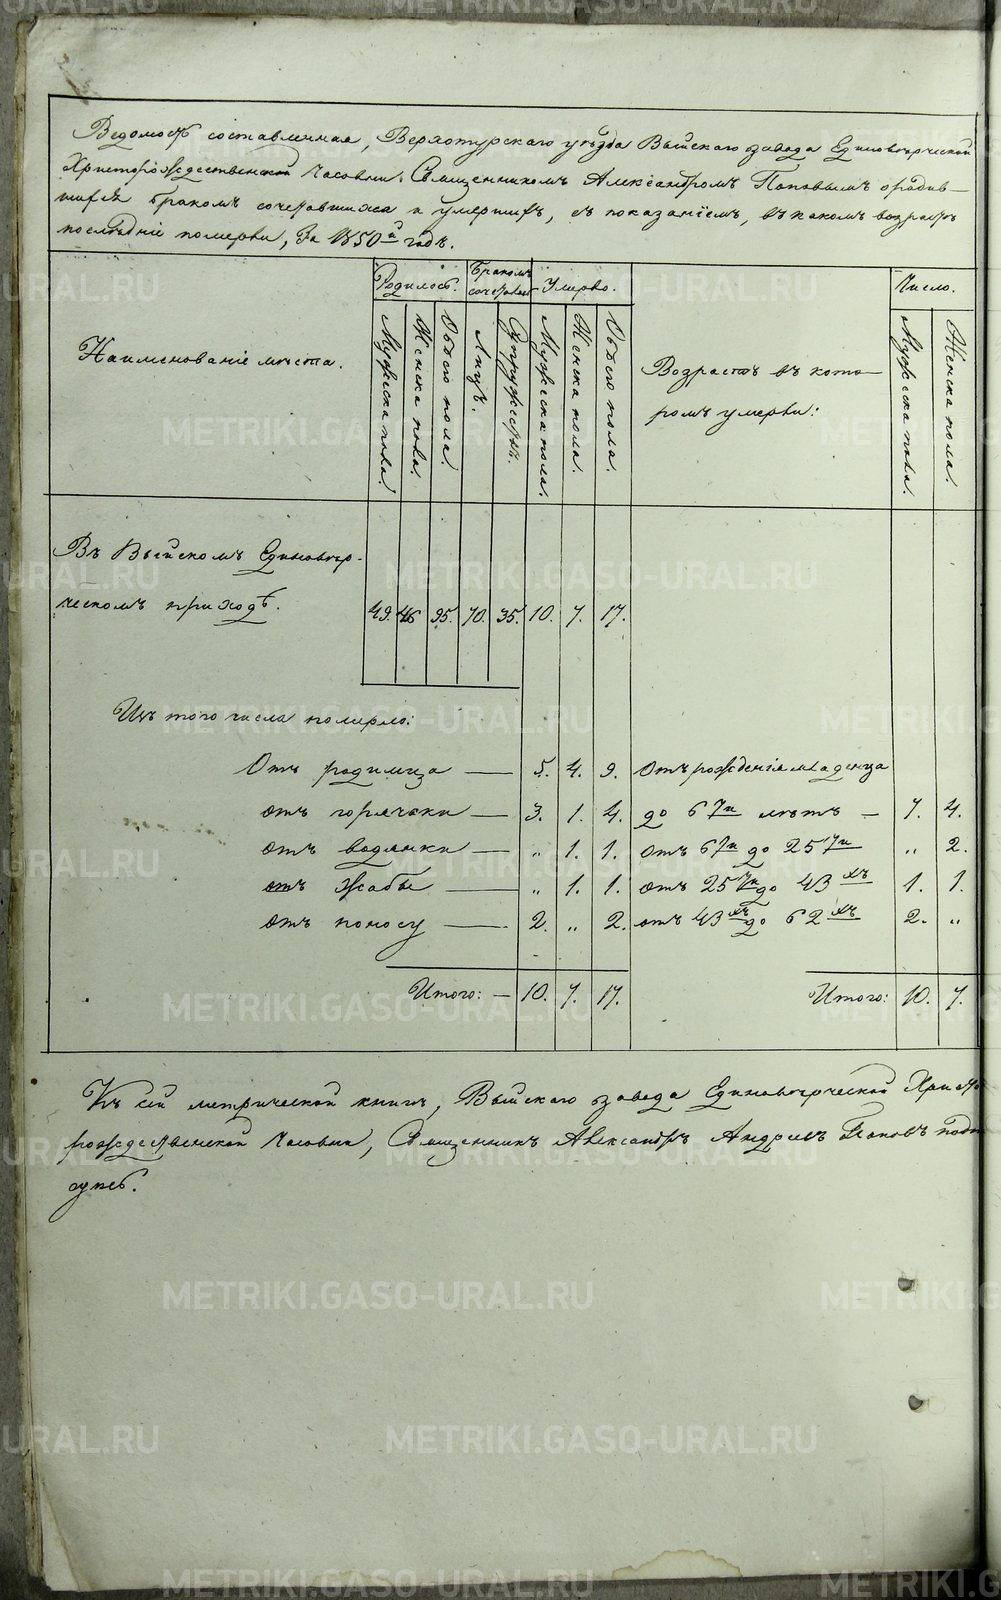 Ведомость составленная, Верхотурскаго уѣзда Выйскаго завода Единовѣрческой
Христорождественской Часовни. Священникомъ Александромъ Поповымъ о родив-
шихся бракомъ сочетавшихся и умершихъ, съ показанiемъ, въ какомъ возрастѣ
послѣднiе померли, за 1850й годъ.
Наименованiе мѣста.
Родилось.
Мужеска пола.
Женска пола.
Обоего пола.
Бракомъ
сочетавш
Лицъ.
Супружествъ.
Умерло.
Мужеска пола.
Женска пола.
Обоего пола.
Возрастъ въ кото-
ромъ умерли:
Число.
Мужеска пола.
Женска пола.
Въ Выйскомъ Единовѣр-
ческомъ приходѣ. 49. 46 95. 70. 35. 10. 7. 17.
Изъ того числа померло:
Отъ родимца — 5. 4. 9. Отъ рожденiя младенца
отъ горячьки — 3. 1. 4. до 6 7и лѣтъ — 7. 4.
отъ водянки — „ 1. 1. отъ 6 7и до 25 7и „ 2.
отъ Жабы — „ 1. 1. отъ 25 7и до 43хъ 1. 1.
отъ поносу — 2. „ 2. отъ 43хъ до 62хъ 2. „
Итого: — 10. 7. 17. Итого: 10. 7.
Къ сей метрической книгѣ, Выйскаго завода Единовѣрческой Христо
рождественской Часовни, Священникъ Александръ Андреевъ Поповъ подпи
суюсь.
METRIKI.GASO-URAL.RU